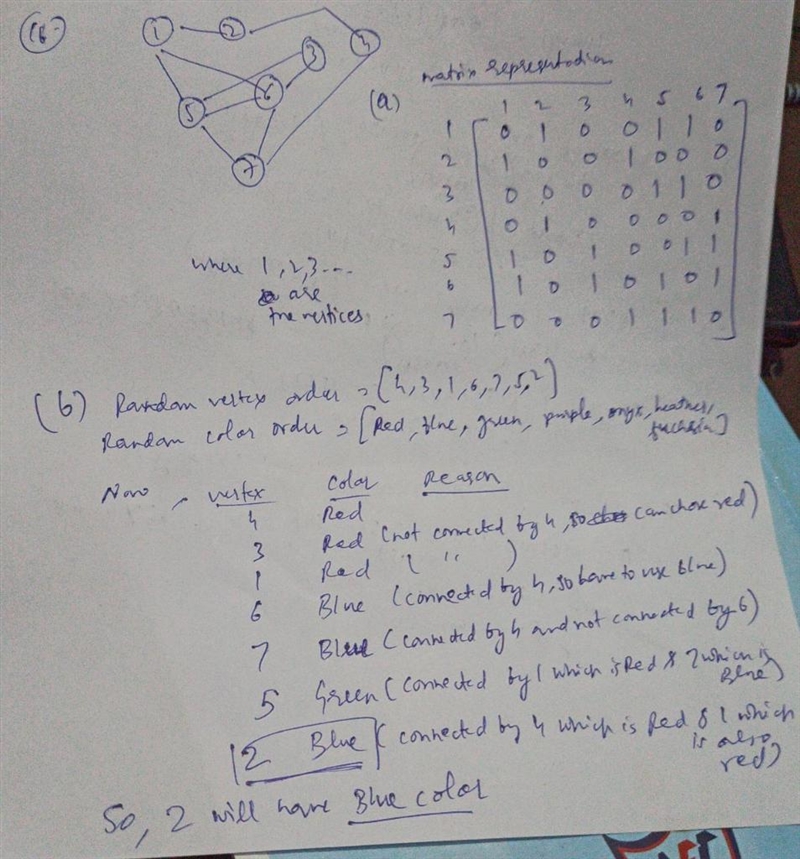 (6)
1 2 3 4
5 6
7
matrix representation
(a)
1 2 3 4 5 6 7
1 0 1 0 0 1 1 0
2 1 0 0 1 0 0 0
3 0 0 0 0 1 1 0
4 0 1 0 0 0 0 1
5 1 0 1 0 0 1 1
6 1 0 1 0 1 0 1
7 0 0 0 1 1 1 0
where 1, 2, 3 ....
are
the vertices
(b) Random vertex order = [4, 3, 1, 6, 7, 5, 2]
Random color order = [Red, blue, green, purple, onyx, heather,
fuchsia]
Now, vertex color Reason
4 Red
3 Red (not connected by 4, so can chose red)
1 Red ( " )
6 Blue (connected by 4, so have to use blue)
7 Blue (connected by 4 and not connected by 6)
5 Green (connected by 1 which is Red & 7 which is
Blue)
2 Blue (connected by 4 which is Red & 1 which
is also
red)
So, 2 will have Blue color